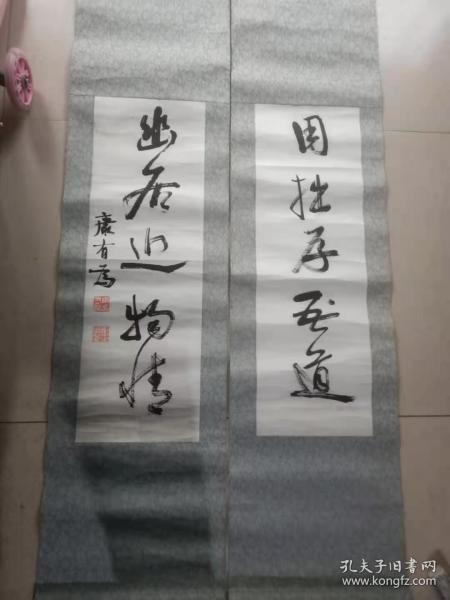 用拙存吾道
幽居近物情
康有為
孔夫子旧书网
www.kongfz.com